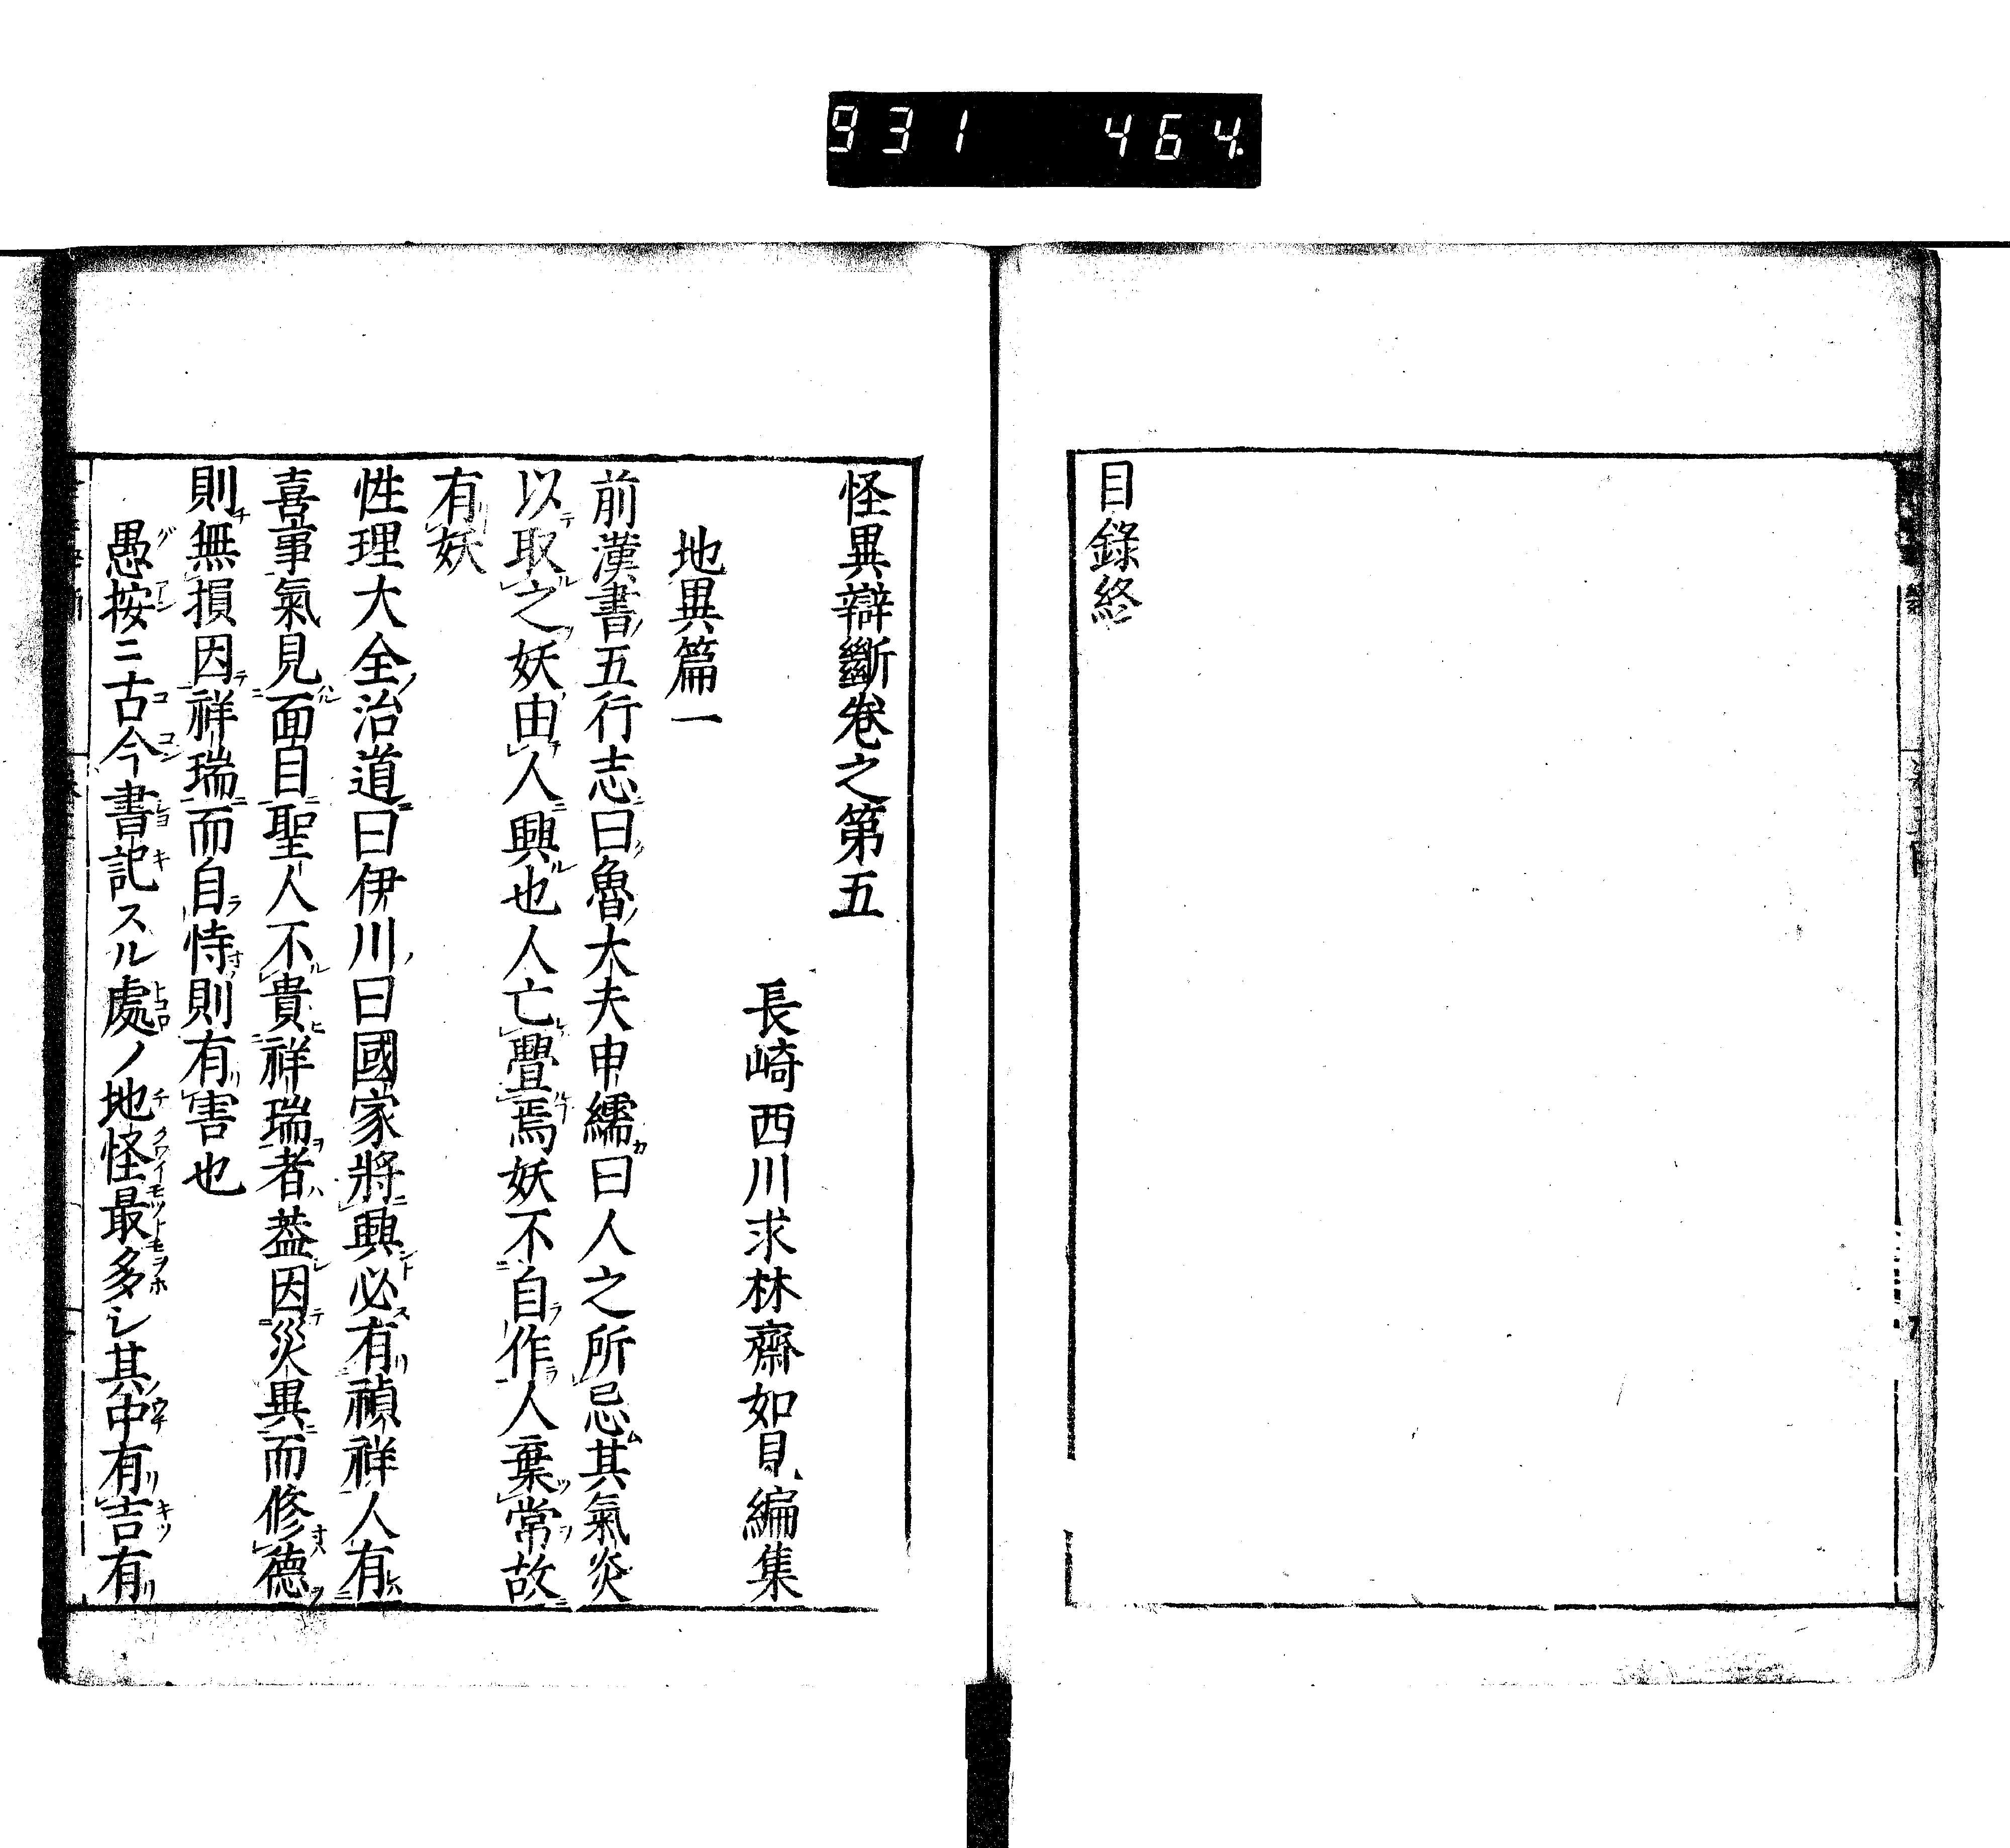 931 464
目錄終
怪異辯斷卷之第五
長崎西川求林齋如見編集
地異篇一
前漢書五行志曰魯大夫申繻曰人之所忌其氣炎
以取之妖由人興也人亡舋焉妖不自作人棄常故
有妖
性理大全治道曰伊川曰國家將興必有禎祥人有
喜事氣見面目聖人不貴祥瑞者葢因災異而修德
則無損因祥瑞而自恃則有害也
愚按ニ古今書記スル處ノ地怪最多シ其中有吉有